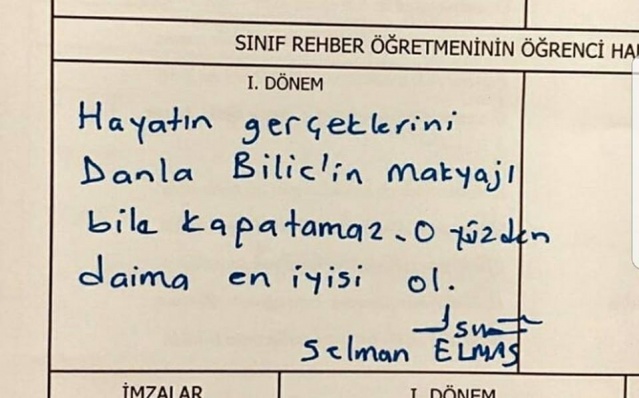 SINIF REHBER ÖĞRETMENİNİN ÖĞRENCİ HA
I. DÖNEM
Hayatın gerçeklerini
Danla Bilic'in makyajı
bile kapatamaz. O yüzden
daima en iyisi ol.
Selman ELMAS
İMZALAR
I. DÖNEM